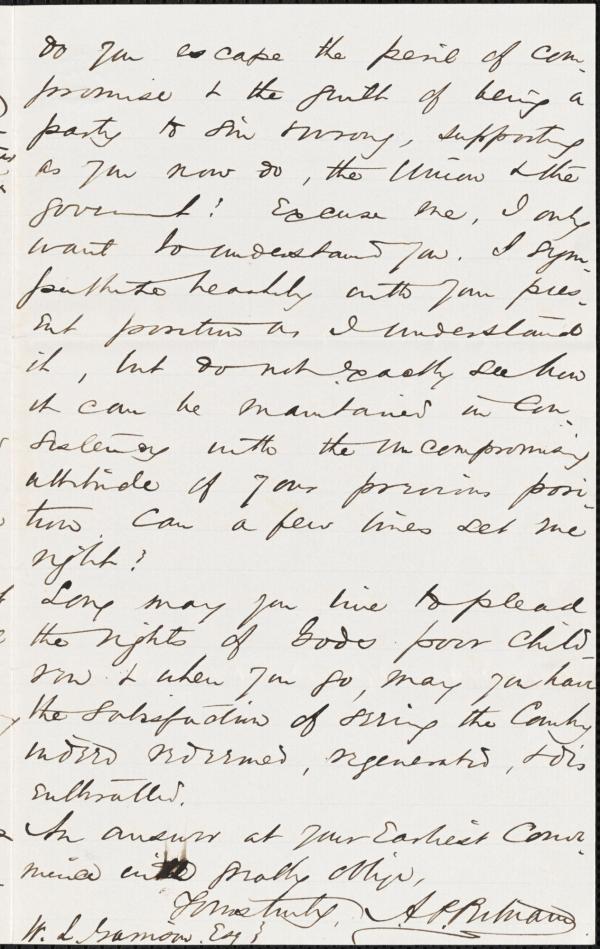 do you escape the peril of com-
promise & the guilt of being a
party to sin & wrong, supporting
as you now do, the Union & the
government? Excuse me, I only
want to understand you. I sym-
pathize heartily with your pres-
ent position as I understand
it, but do not exactly see how
it can be maintained in con-
sistency with the uncompromising
attitude of your previous posi-
tion. Can a few lines set me
right?
Long may you live to plead
the rights of Gods poor child
ren & when you go, may you have
the satisfaction of seeing the Country
indeed redeemed, regenerated, & dis
enthralled.
An answer at your Earliest Conve-
nience will greatly oblige,
Yours truly, A. P. Putnam
W. L. Garrison. Esq.